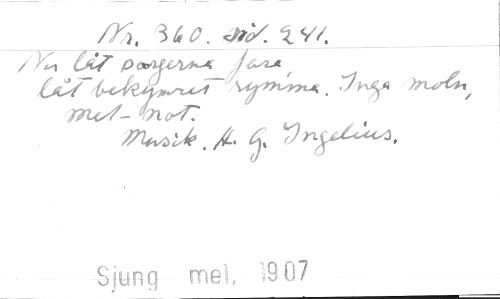 Nr. 360. sid. 241.
Nu låt sorgerna fara
låt bekymret rymma. Inga moln,
mel-not.
Musik. A. G. Ingelius.
Sjung mel. 1907